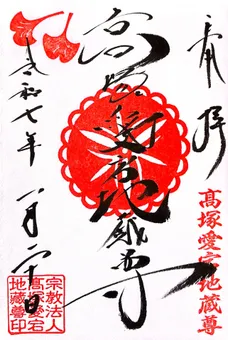 奉拝
高塚愛宕地蔵尊
高塚愛宕地蔵尊
令和七年 一月二十日
宗教法人
高塚愛宕
地蔵尊印